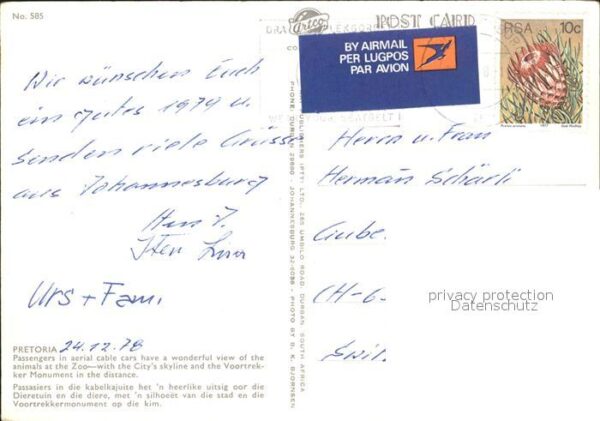 No. 585
Artco
POST CARD
BY AIRMAIL
PER LUGPOS
PAR AVION
RSA 10c
Wir wünschen Euch
ein gutes 1979 u.
senden viele Grüsse
aus Johannesburg
Urs + Fam.
PRETORIA 24.12.78
Passengers in aerial cable cars have a wonderful view of the
animals at the Zoo—with the City's skyline and the Voortrek-
ker Monument in the distance.
Passasiers in die kabelkajuite het 'n heerlike uitsig oor die
Dieretuin en die diere, met 'n silhoeët van die stad en die
Voortrekkermonument op die kim.
PUBLISHERS (PTY.) LTD., 265 UMBILO ROAD, DURBAN, SOUTH AFRICA
PHONE: DURBAN JOHANNESBURG PHOTO BY D. K. BJORNSEN
Herrn u. Frau
Herman Schärli
Gube.
CH-6
privacy protection
Datenschutz